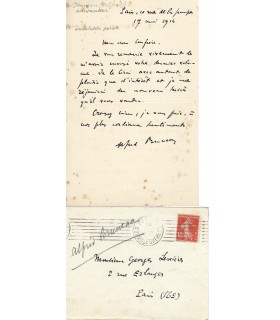 Paris, 10 rue de la Pompe
17 mai 1914
Mon cher confrère,
Je vous remercie vivement de
m'avoir envoyé votre dernier volu-
me. Je le lirai avec autant de
plaisir que d'intérêt et je me
réjouirai du nouveau succès
qu'il vous vaudra.
Croyez bien, je vous prie, à
mes plus cordiaux sentiments
Alfred Bruneau
Alfred Bruneau
Monsieur Georges
2 rue Erlanger
Paris (16E)